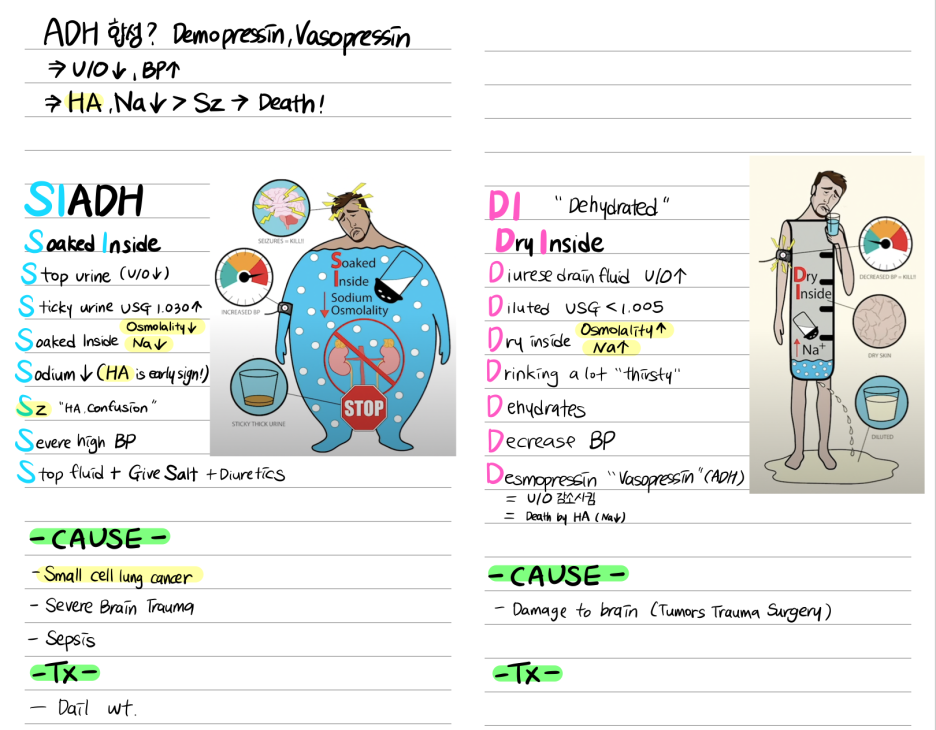 ADH 합성? Demopressin, Vasopressin
⇒ U/O↓, BP↑
⇒ HA, Na↓ > Sz → Death!
SIADH
Soaked Inside
Stop urine (U/O↓)
Sticky urine USG 1.030↑
Soaked Inside Osmolality↓
Na↓
Sodium↓ (HA is early sign!)
Sz "HA, confusion"
Severe high BP
Stop fluid + Give Salt + Diuretics
SEIZURES = KILL!!
INCREASED BP
STICKY THICK URINE
Soaked
Inside
↓ Sodium
Osmolality
STOP
- CAUSE -
- Small cell lung cancer
- Severe Brain Trauma
- Sepsis
- Tx -
- Dail wt.
DI "Dehydrated"
Dry Inside
Diurese drain fluid U/O↑
Diluted USG < 1.005
Dry inside Osmolality↑
Na↑
Drinking a lot "thirsty"
Dehydrates
Decrease BP
Desmopressin "Vasopressin" (ADH)
= U/O 감소시킴
= Death by HA (Na↓)
Dry
Inside
↑ Na+
DECREASED BP = KILL!!
DRY SKIN
DILUTED
- CAUSE -
- Damage to brain (Tumors Trauma Surgery)
- Tx -